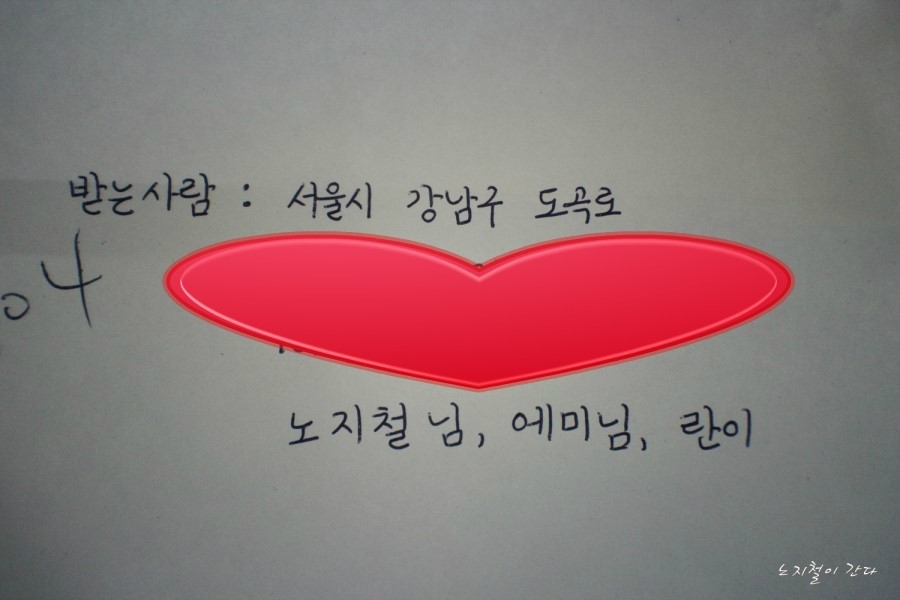 받는사람 : 서울시 강남구 도곡로
04
노지철 님, 에미님, 란이
노지철이 간다